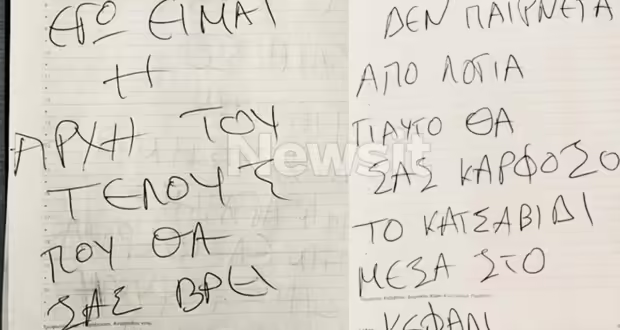 ΕΓΩ ΕΙΜΑΙ
Η
ΑΡΧΗ ΤΟΥ
ΤΕΛΟΥΣ
ΠΟΥ ΘΑ
ΣΑΣ ΒΡΕΙ
ΔΕΝ ΠΑΙΡΝΕΤΑ
ΑΠΟ ΛΟΓΙΑ
ΓΙΑΥΤΟ ΘΑ
ΣΑΣ ΚΑΡΦΟΣΟ
ΤΟ ΚΑΤΣΑΒΙΔΙ
ΜΕΣΑ ΣΤΟ
ΚΕΦΑΛΙ
Newsit